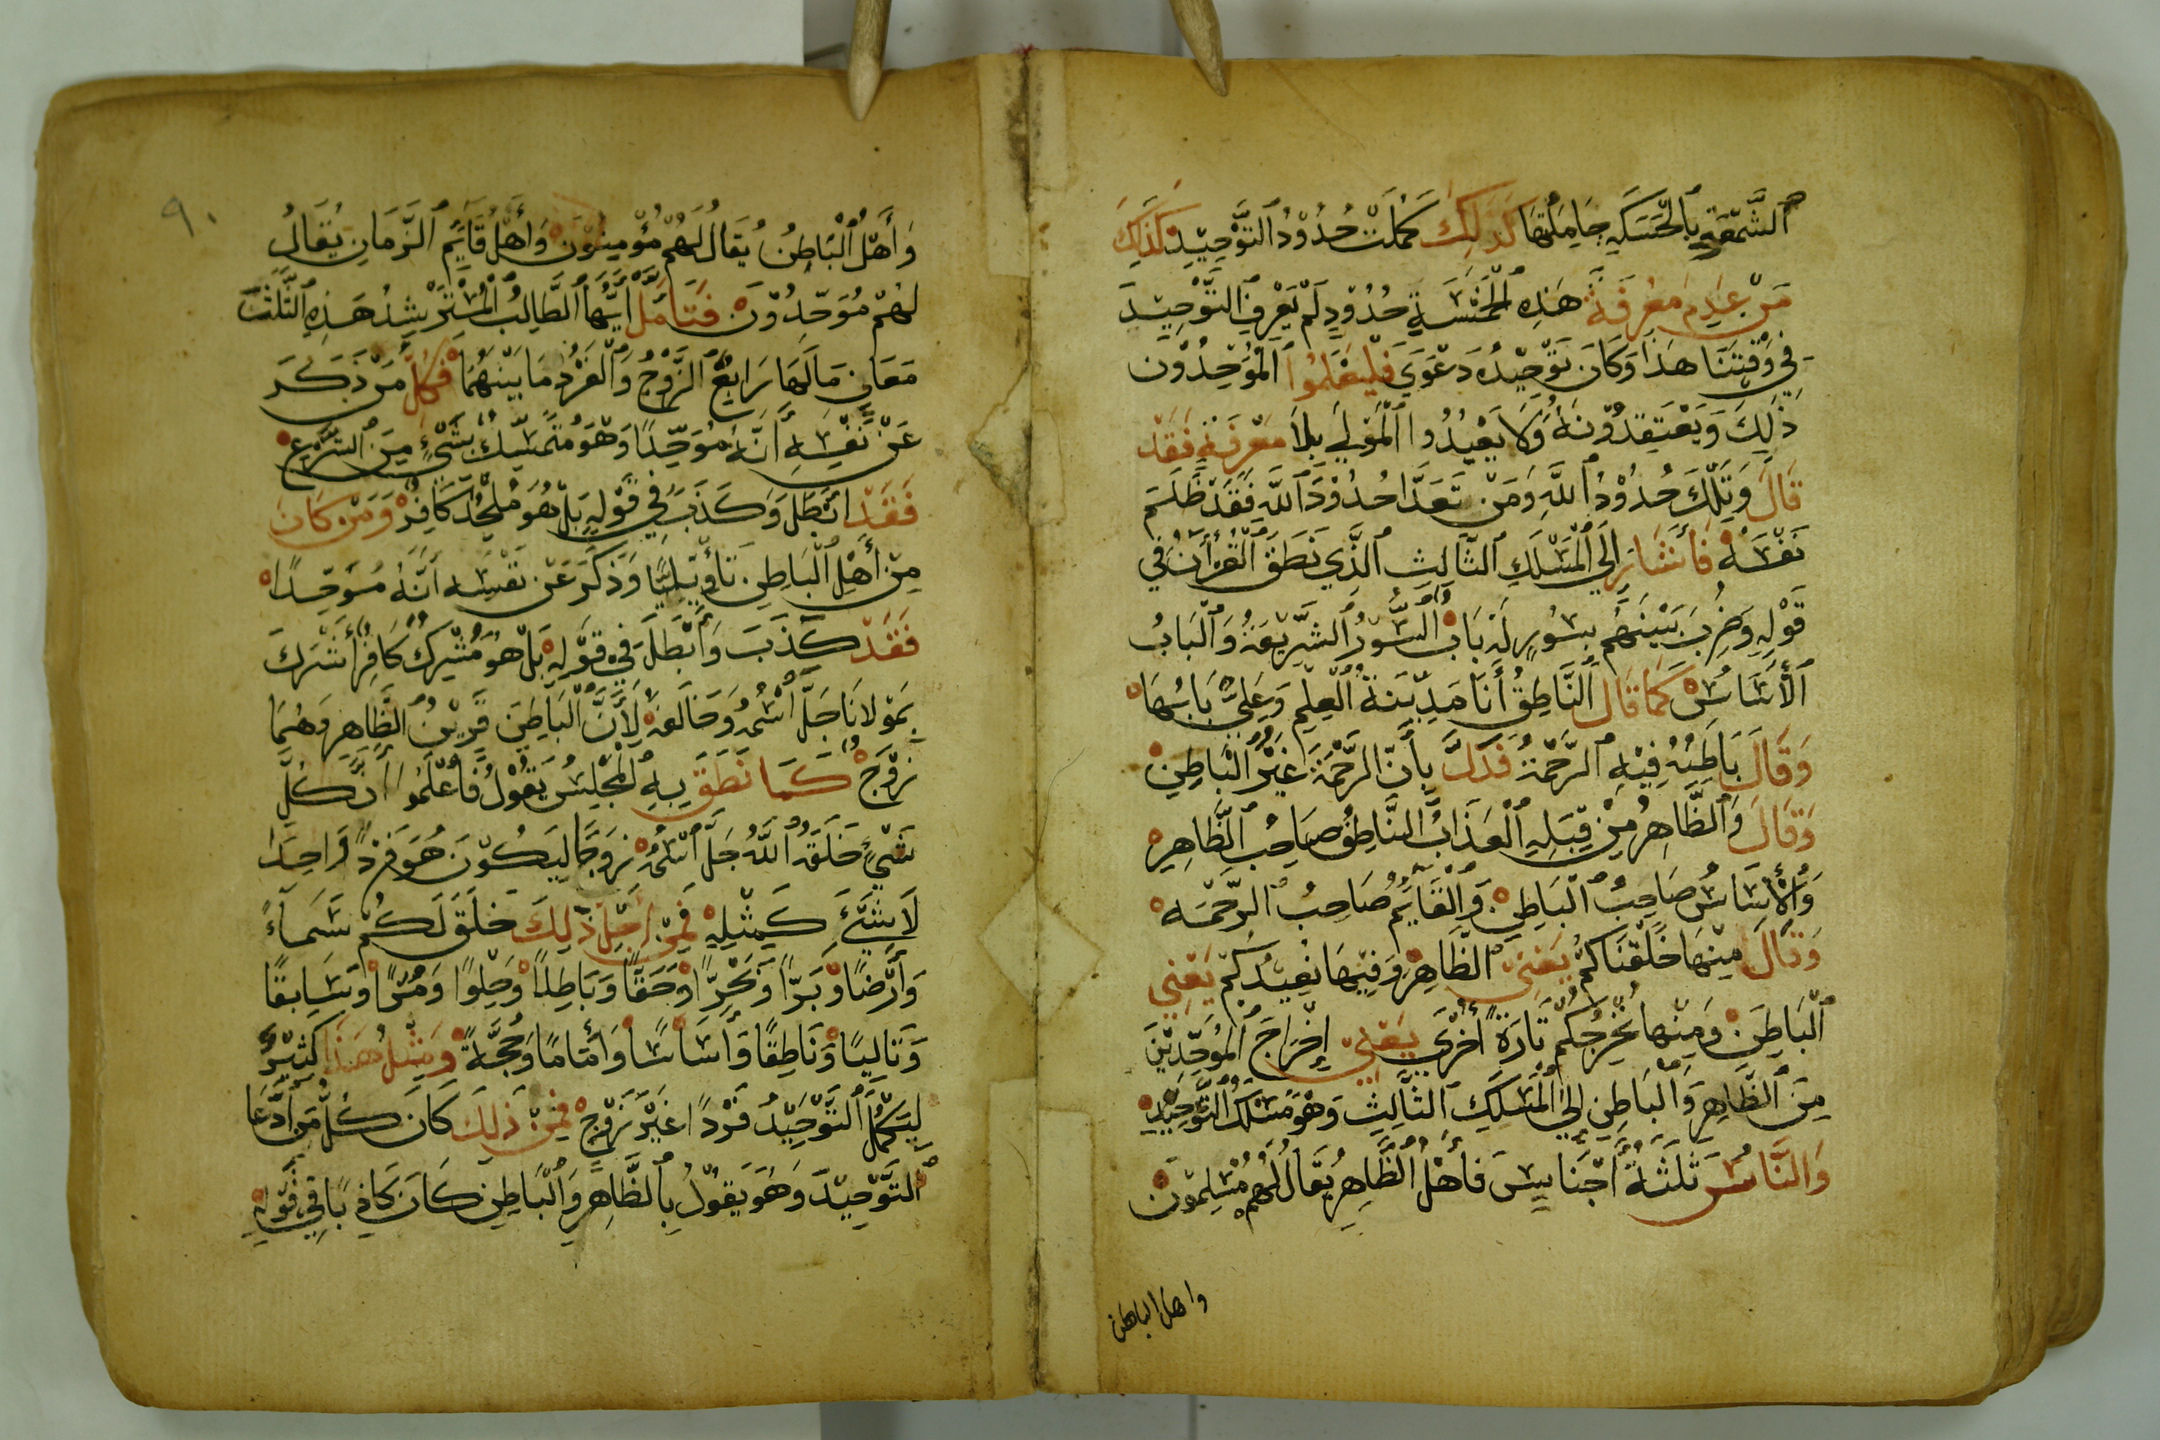 الشَّمْعَةِ بِالْحَسَكَةِ حَامِلُتهَا كَذَلِكَ كَمُلَتْ حُدُوْدُ التَّوْحِيْدِ كَذَلِكَ
مَنْ عَدِمَ مَعْرِفَةَ هَذِهِ الْخَمْسَةِ حُدُوْدِ لَمْ يَعْرِفِ التَّوْحِيْدَ
فِي وَقْتِنَا هَذَا وَكَانَ تَوْحِيْدُهُ دَعْوَي فَلْيَعْلَمُوا الْمُوَحِّدُوْنَ
ذَلِكَ وَيَعْتَقِدُوْنَهُ وَلَا يَعْبُدُوا الْمَوْلَي بِلَا مَعْرِفَةٍ فَقَدْ
قَالَ وَتِلْكَ حُدُوْدُ اللَّهِ وَمَنْ تَعَدَّا حُدُوْدَ اللَّهِ فَقَدْ ظَلَمَ
نَفْسَهُ فَأَشَارَ إِلَي الْمَسْلَكِ الثَّالِثِ الَّذِي نَطَقَ الْقُرْأَنُ فِي
قَوْلِهِ وَضُرِبَ بَيْنَهُم بِسُوْرٍ لَهُ بَابٌ السُّوْرُ الشَّرِيْعَةُ وَالْبَابُ
الْأَسَاسُ كَمَا قَالَ النَّاطِقُ أَنَا مَدِيْنَةُ الْعِلْمِ وَعَلِيٌّ بَابُهَا
وَقَالَ بَاطِنُهُ فِيْهِ الرَّحْمَةُ فَدَلَّ بِأَنَّ الرَّحْمَةَ غَيْرُ الْبَاطِنِ
وَقَالَ وَالظَّاهِرُ مِنْ قِبَلِهِ الْعَذَابُ النَّاطِقُ صَاحِبُ الظَّاهِرِ
وَالْأَسَاسُ صَاحِبُ الْبَاطِنِ وَالْقَايِمُ صَاحِبُ الرَّحْمَه
وَقَالَ مِنْهَا خَلَقْنَاكُمْ يَعْنِي الظَّاهِرَ وَفِيْهَا نُعِيْدُكُمْ يَعْنِي
الْبَاطِنَ وَمِنْهَا نُخْرِجُكُمْ تَارَةً أُخْرَي يَعْنِي إِخْرَاجَ الْمُوَحِّدِيْنَ
مِنَ الظَّاهِرِ وَالْبَاطِنِ إِلَي الْمَسْلَكِ الثَّالِثِ وَهُوَ مَسْلَكُ التَّوْحِيْدِ
وَالنَّاسُ ثَلَثَةُ أَجْنَاسٍ فَأَهْلُ الظَّاهِرِ يُقَالُ لَهُمْ مُسْلِمُوْنَ
واهل الباطن
٩٠
وَأَهْلُ الْبَاطِنِ يُقَالُ لَهُمْ مُؤْمِنُوْنَ وَأَهْلُ قَايِمِ الزَّمَانِ يُقَالُ
لَهُمْ مُوَحِّدُوْنَ فَتَأَمَّلْ أَيُّهَا الطَّالِبُ الْمُسْتَرْشِدُ هَذِهِ الثَّلَثَ
مَعَانِي مَا لَهَا رَابِعٌ الزَّوْجُ وَالْفَرْدُ مَا بَيْنَهُمَا فَكُلُّ مَنْ ذَكَرَ
عَنْ نَفْسِهِ أَنَّهُ مُوَحِّدًا وَهُوَ مُتَمَسِّكٌ بِشَيْءٍ مِنَ الشَّرْعِ
فَقَدْ أَبْطَلَ وَكَذَبَ فِي قَوْلِهِ بَلْ هُوَ مُلْحِدٌ كَافِرٌ وَمَنْ كَانَ
مِنْ أَهْلِ الْبَاطِنِ تَأْوِيْلِيًّا وَذَكَرَ عَنْ نَفْسِه أَنَّهُ مُوَحِّدًا
فَقَدْ كَذَبَ وَأَبْطَلَ فِي قَوْلِهِ بَلْ هُوَ مُشْرِكٌ كَافِرٌ أَشْرَكَ
بِمَوْلَانَا جَلَّ اسْمُهُ وَخَالَفَهُ لِأَنَّ الْبَاطِنَ قَرِيْنُ الظَّاهِرِ وَهُمَا
زَوْجٌ كَمَا نَطَقَ بِهِ الْمَجْلِسُ يَقُوْلُ فَاعْلَمُوا أَنَّ كُلَّ
شَيْءٍ خَلَقَهُ اللَّهُ جَلَّ اسْمُهُ زَوْجًا لِيَكُوْنَ هُوَ فَرْدًا وَاحِدًا
لَا شَيْءَ كَمِثْلِهِ فَمِنْ أَجْلِ ذَلِكَ خَلَقَ لَكُمْ سَمَاءً
وَأَرْضًا وَبَرًّا وَبَحْرًا وَحَقًّا وَبَاطِلًا وَحِلْوًا وَمُرًّا وَسَابِقًا
وَتَالِيًا وَنَاطِقًا وَأَسَاسًا وَأَمَامًا وَحُجَّةً وَمِثْلُ هَذَا كَثِيْرٌ
لِيَكْمُلَ التَّوْحِيْدُ فَرْدًا غَيْرَ زَوْجٍ فَمِنْ ذَلِكَ كَانَ كُلُّ مَنْ أَدَّعَا
التَّوْحِيْدَ وَهُوَ يَقُوْلُ بِالظَّاهِرِ وَالْبَاطِنِ كَانَ كَاذِبًا فِي قَوْلِهِ